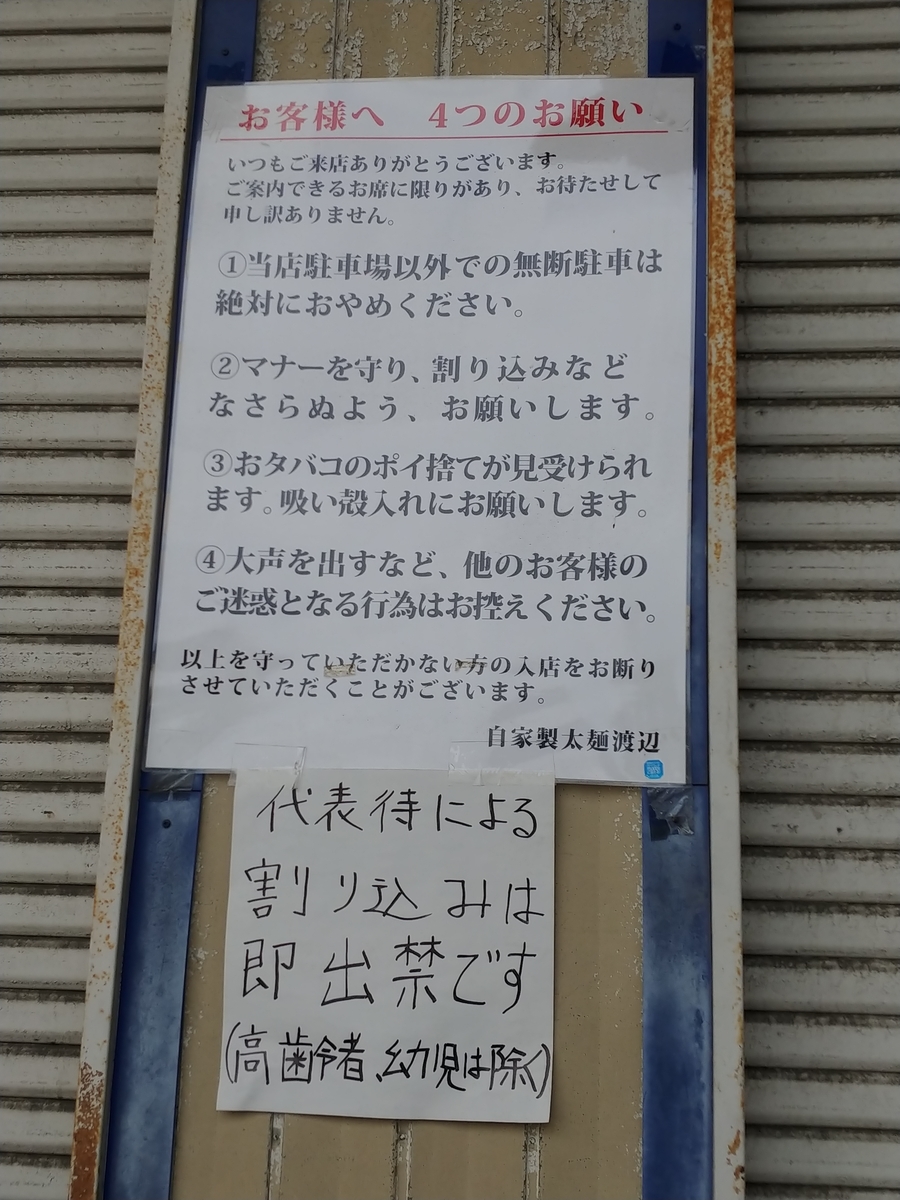 お客様へ 4つのお願い
いつもご来店ありがとうございます。
ご案内できるお席に限りがあり、お待たせして
申し訳ありません。
①当店駐車場以外での無断駐車は
絶対におやめください。
②マナーを守り、割り込みなど
なさらぬよう、お願いします。
③おタバコのポイ捨てが見受けられ
ます。吸い殻入れにお願いします。
④大声を出すなど、他のお客様の
ご迷惑となる行為はお控えください。
以上を守っていただかない方の入店をお断り
させていただくことがございます。
自家製太麺渡辺
代表待による
割り込みは
即出禁です
(高齢者、幼児は除く)